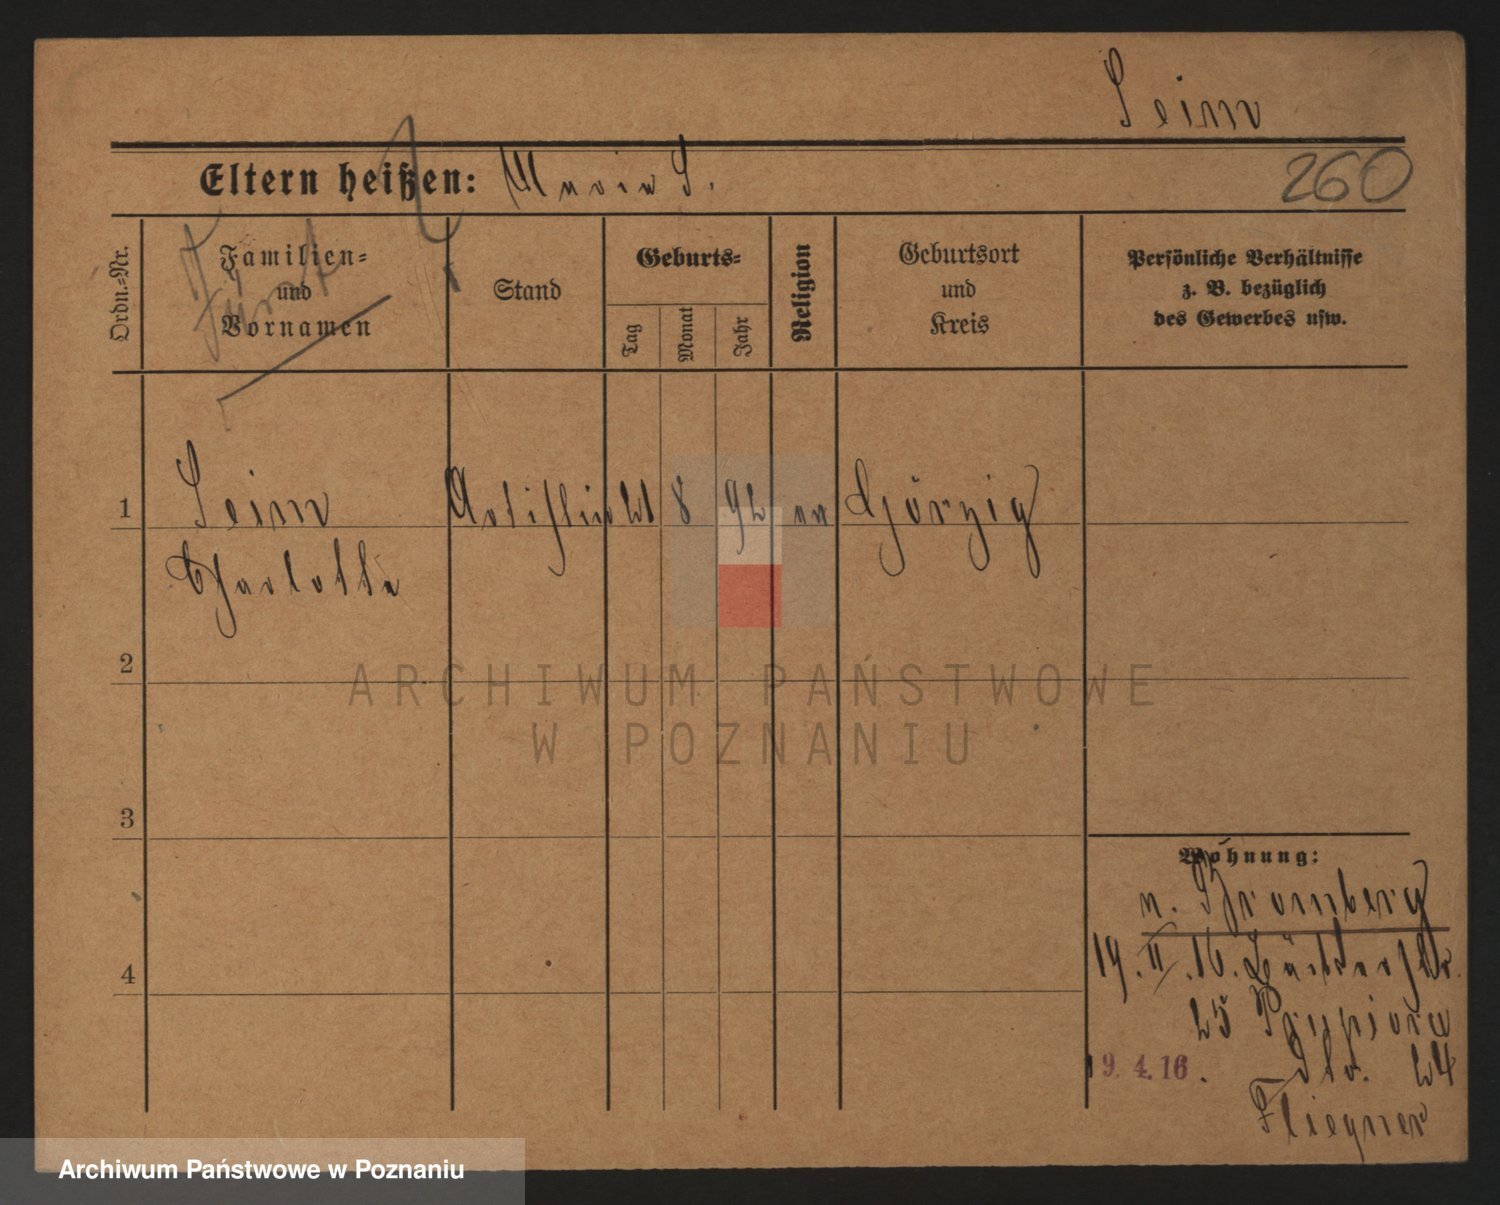 Seim
Eltern heißen: Marie S.
260
Ordn.-Nr.
Familien-
und
Vornamen
Stand
Geburts-
Tag
Monat
Jahr
Religion
Geburtsort
und
Kreis
Persönliche Verhältnisse
z. B. bezüglich
des Gewerbes usw.
1 Seim Artistin 21 8 92 ev Görzig
Charlotte
2
ARCHIWUM PAŃSTWOWE
W POZNANIU
3
Wohnung:
n. Bromberg
19. II. 16.
25
4
9. 4. 16. dto. 24
Fliegner
Archiwum Państwowe w Poznaniu